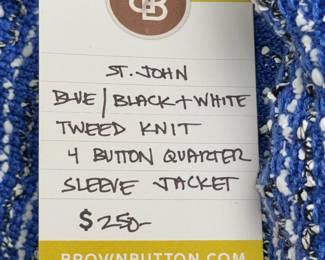 B
ST. JOHN
BLUE / BLACK + WHITE
TWEED KNIT
4 BUTTON QUARTER
SLEEVE JACKET
$250-
BROWNBUTTON.COM